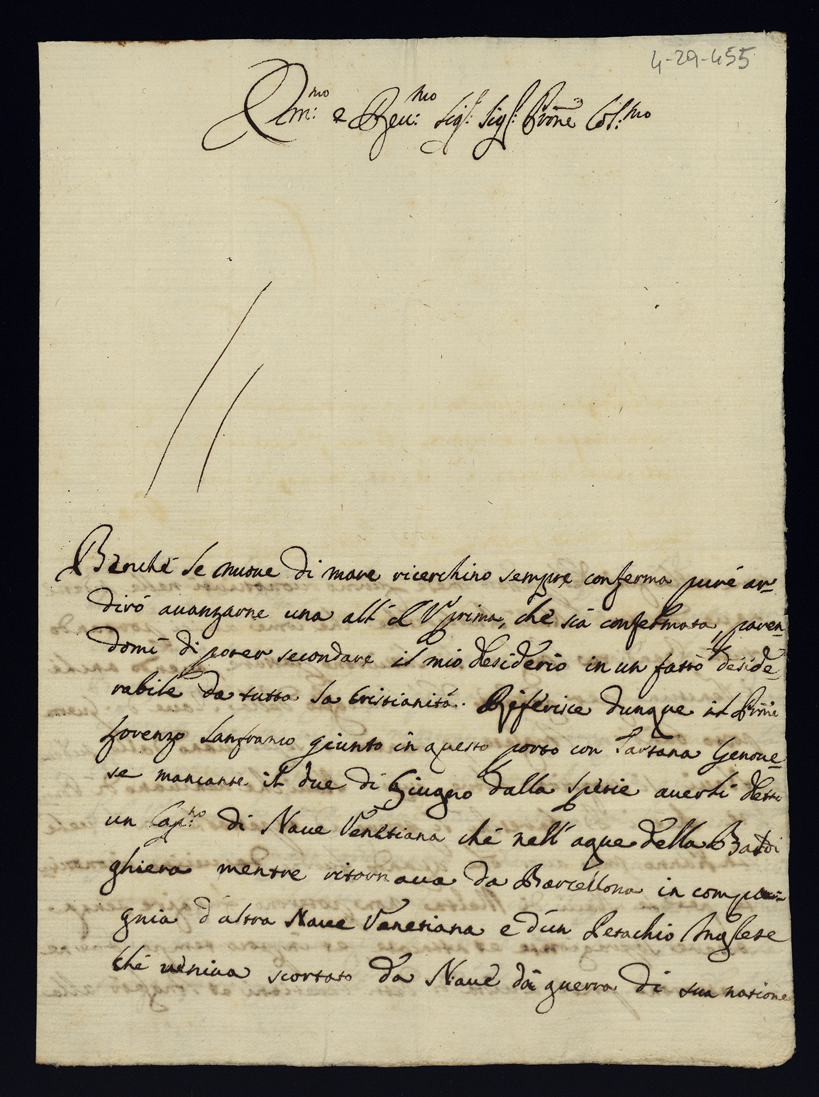 4-29-455
Em:mo e Reu:mo Sig:r Sig:r Prone Col:mo
Benche le nuoue di mare ricerchino sempre conferma pure ar-
dirò auanzarne una all' E V prima, che sia confermata, paren-
domi di poter secondare il mio desiderio in un fatto deside
rabile da tutta la Cristianità. Riferisce dunque il Prone
Lorenzo Lanfranco giunto in questo porto con Tartana Genoue-
se mancante il due di Giugno dalla Spetie auerli detto
un Cap:no di Naue Venetiana che nell' aque della
ghiera mentre ritornaua da Barcellona in compa-
gnia d'altra Naue Venetiana e d'un Petachio Inglese
che ueniua scortato da Naue da guerra di sua natione